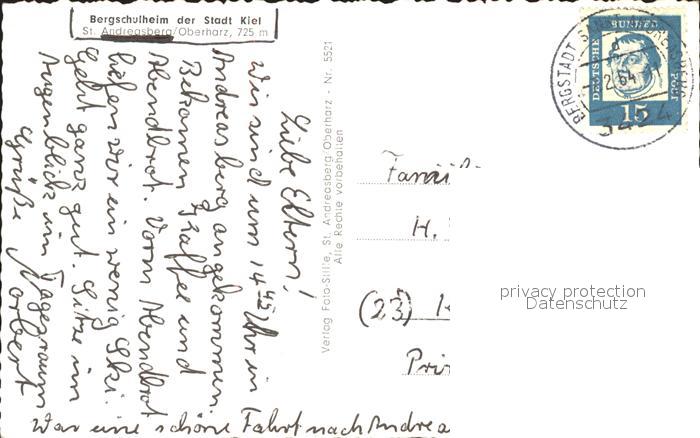 Bergschulheim der Stadt Kiel
St. Andreasberg/Oberharz, 725 m
Liebe Eltern!
Wir sind um 14 45 Uhr in
Andreasberg angekommen.
Bekamen Kaffee und
Abendbrot. Vorm Abendbrot
liefen wir ein wenig Ski.
Geht ganz gut. Sitze im
Augenblick im Tagesraum
Grüße Norbert
War eine schöne Fahrt nach Andrea
Verlag Foto-Stille, St. Andreasberg/Oberharz - Nr. 5521
Alle Rechte vorbehalten
BERGSTADT ST. ANDREASBERG
2.64
3424
DEUTSCHE
BUNDES
POST
15
Famili
H.
(23)
privacy protection
Datenschutz